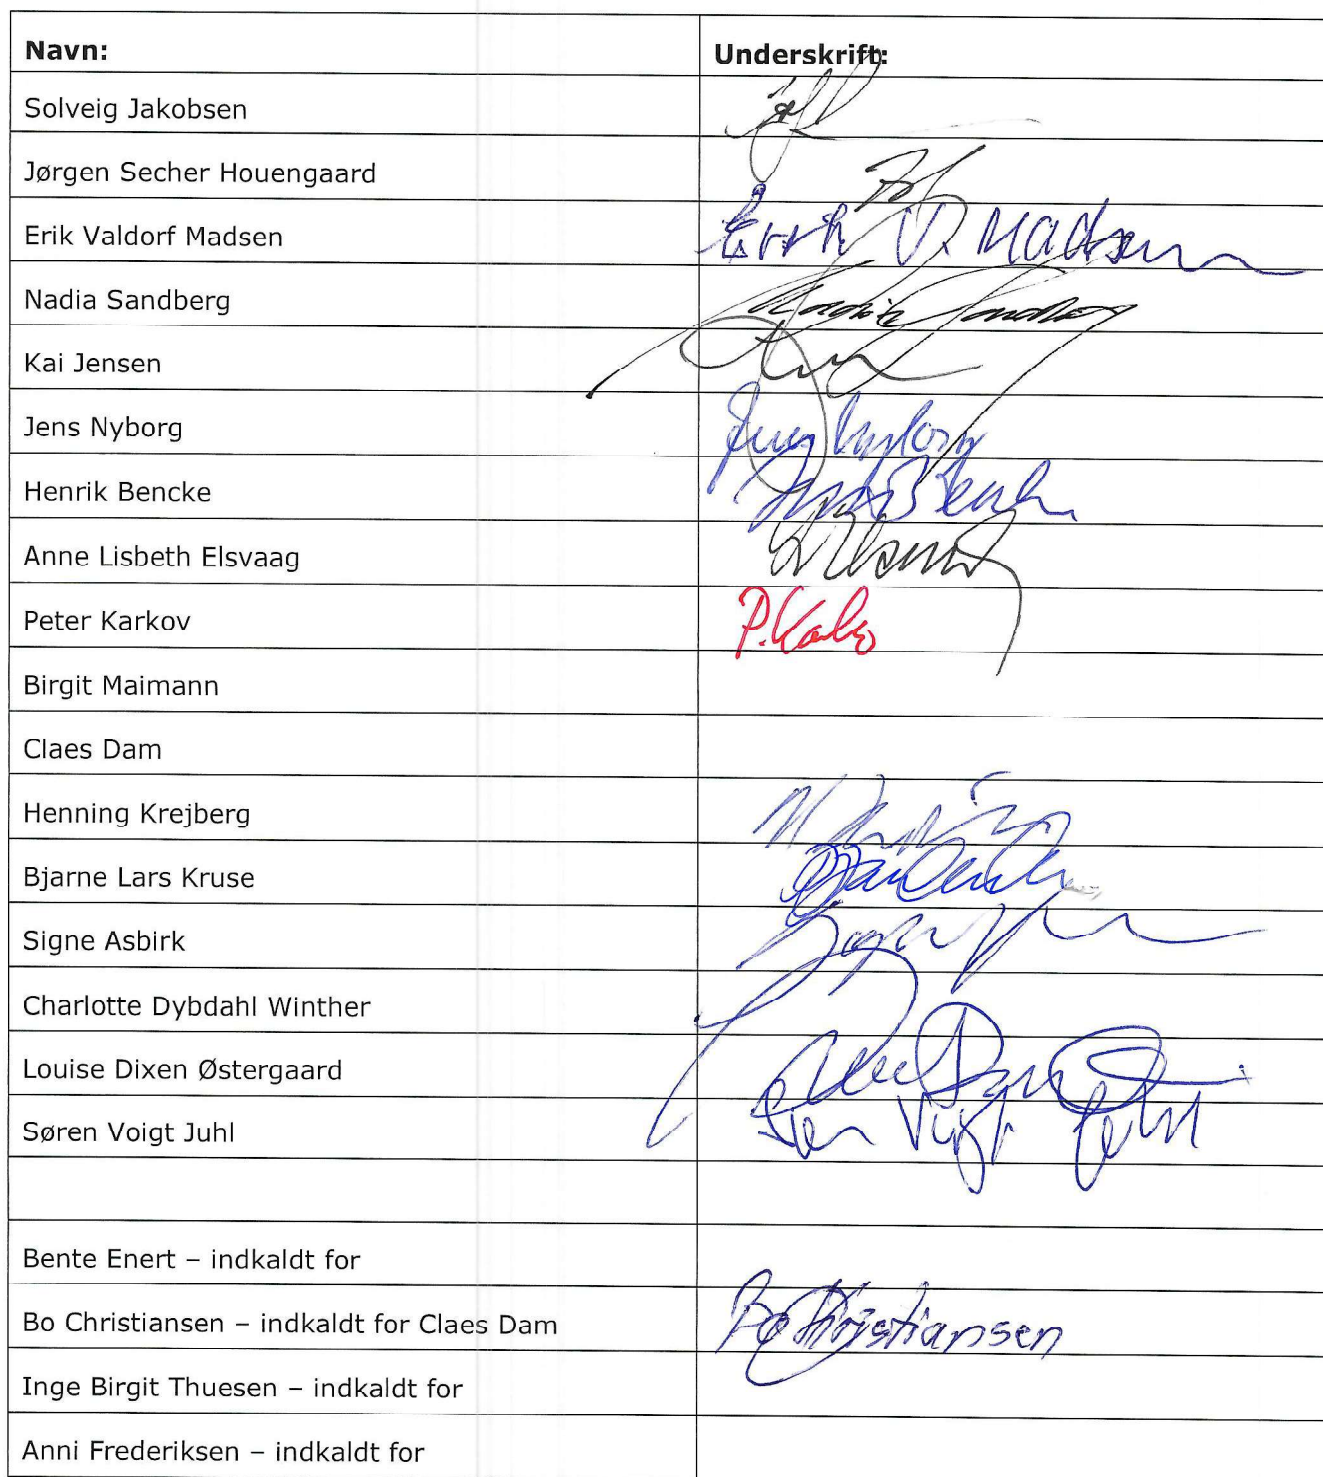 Navn: Underskrift:
Solveig Jakobsen
Jørgen Secher Houengaard
Erik Valdorf Madsen Erik V. Madsen
Nadia Sandberg Nadia Sandberg
Kai Jensen
Jens Nyborg Jens Nyborg
Henrik Bencke
Anne Lisbeth Elsvaag
Peter Karkov P. Karkov
Birgit Maimann
Claes Dam
Henning Krejberg
Bjarne Lars Kruse
Signe Asbirk
Charlotte Dybdahl Winther
Louise Dixen Østergaard
Søren Voigt Juhl Søren Voigt Juhl
Bente Enert – indkaldt for
Bo Christiansen – indkaldt for Claes Dam Bo Christiansen
Inge Birgit Thuesen – indkaldt for
Anni Frederiksen – indkaldt for